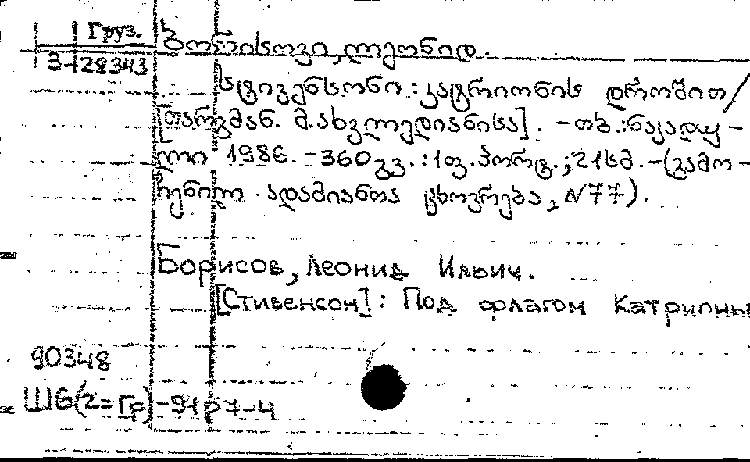 Груз.
3-28343
ბორისოვი, ლეონიდ.
სტივენსონი : კატრიონის დროშით/
[თარგმან. მ. ახვლედიანისა]. - თბ. : ნაკადუ-
ლი 1986. - 360 გვ. : 1 ფ. პორტ. ; 21სმ. - (გამო-
ჩენილ ადამიანთა ცხოვრება, N77).
Борисов, Леонид Ильич.
[Стивенсон] : Под флагом Катрионы
90348
Ш6(2=Гр)-91р7-4